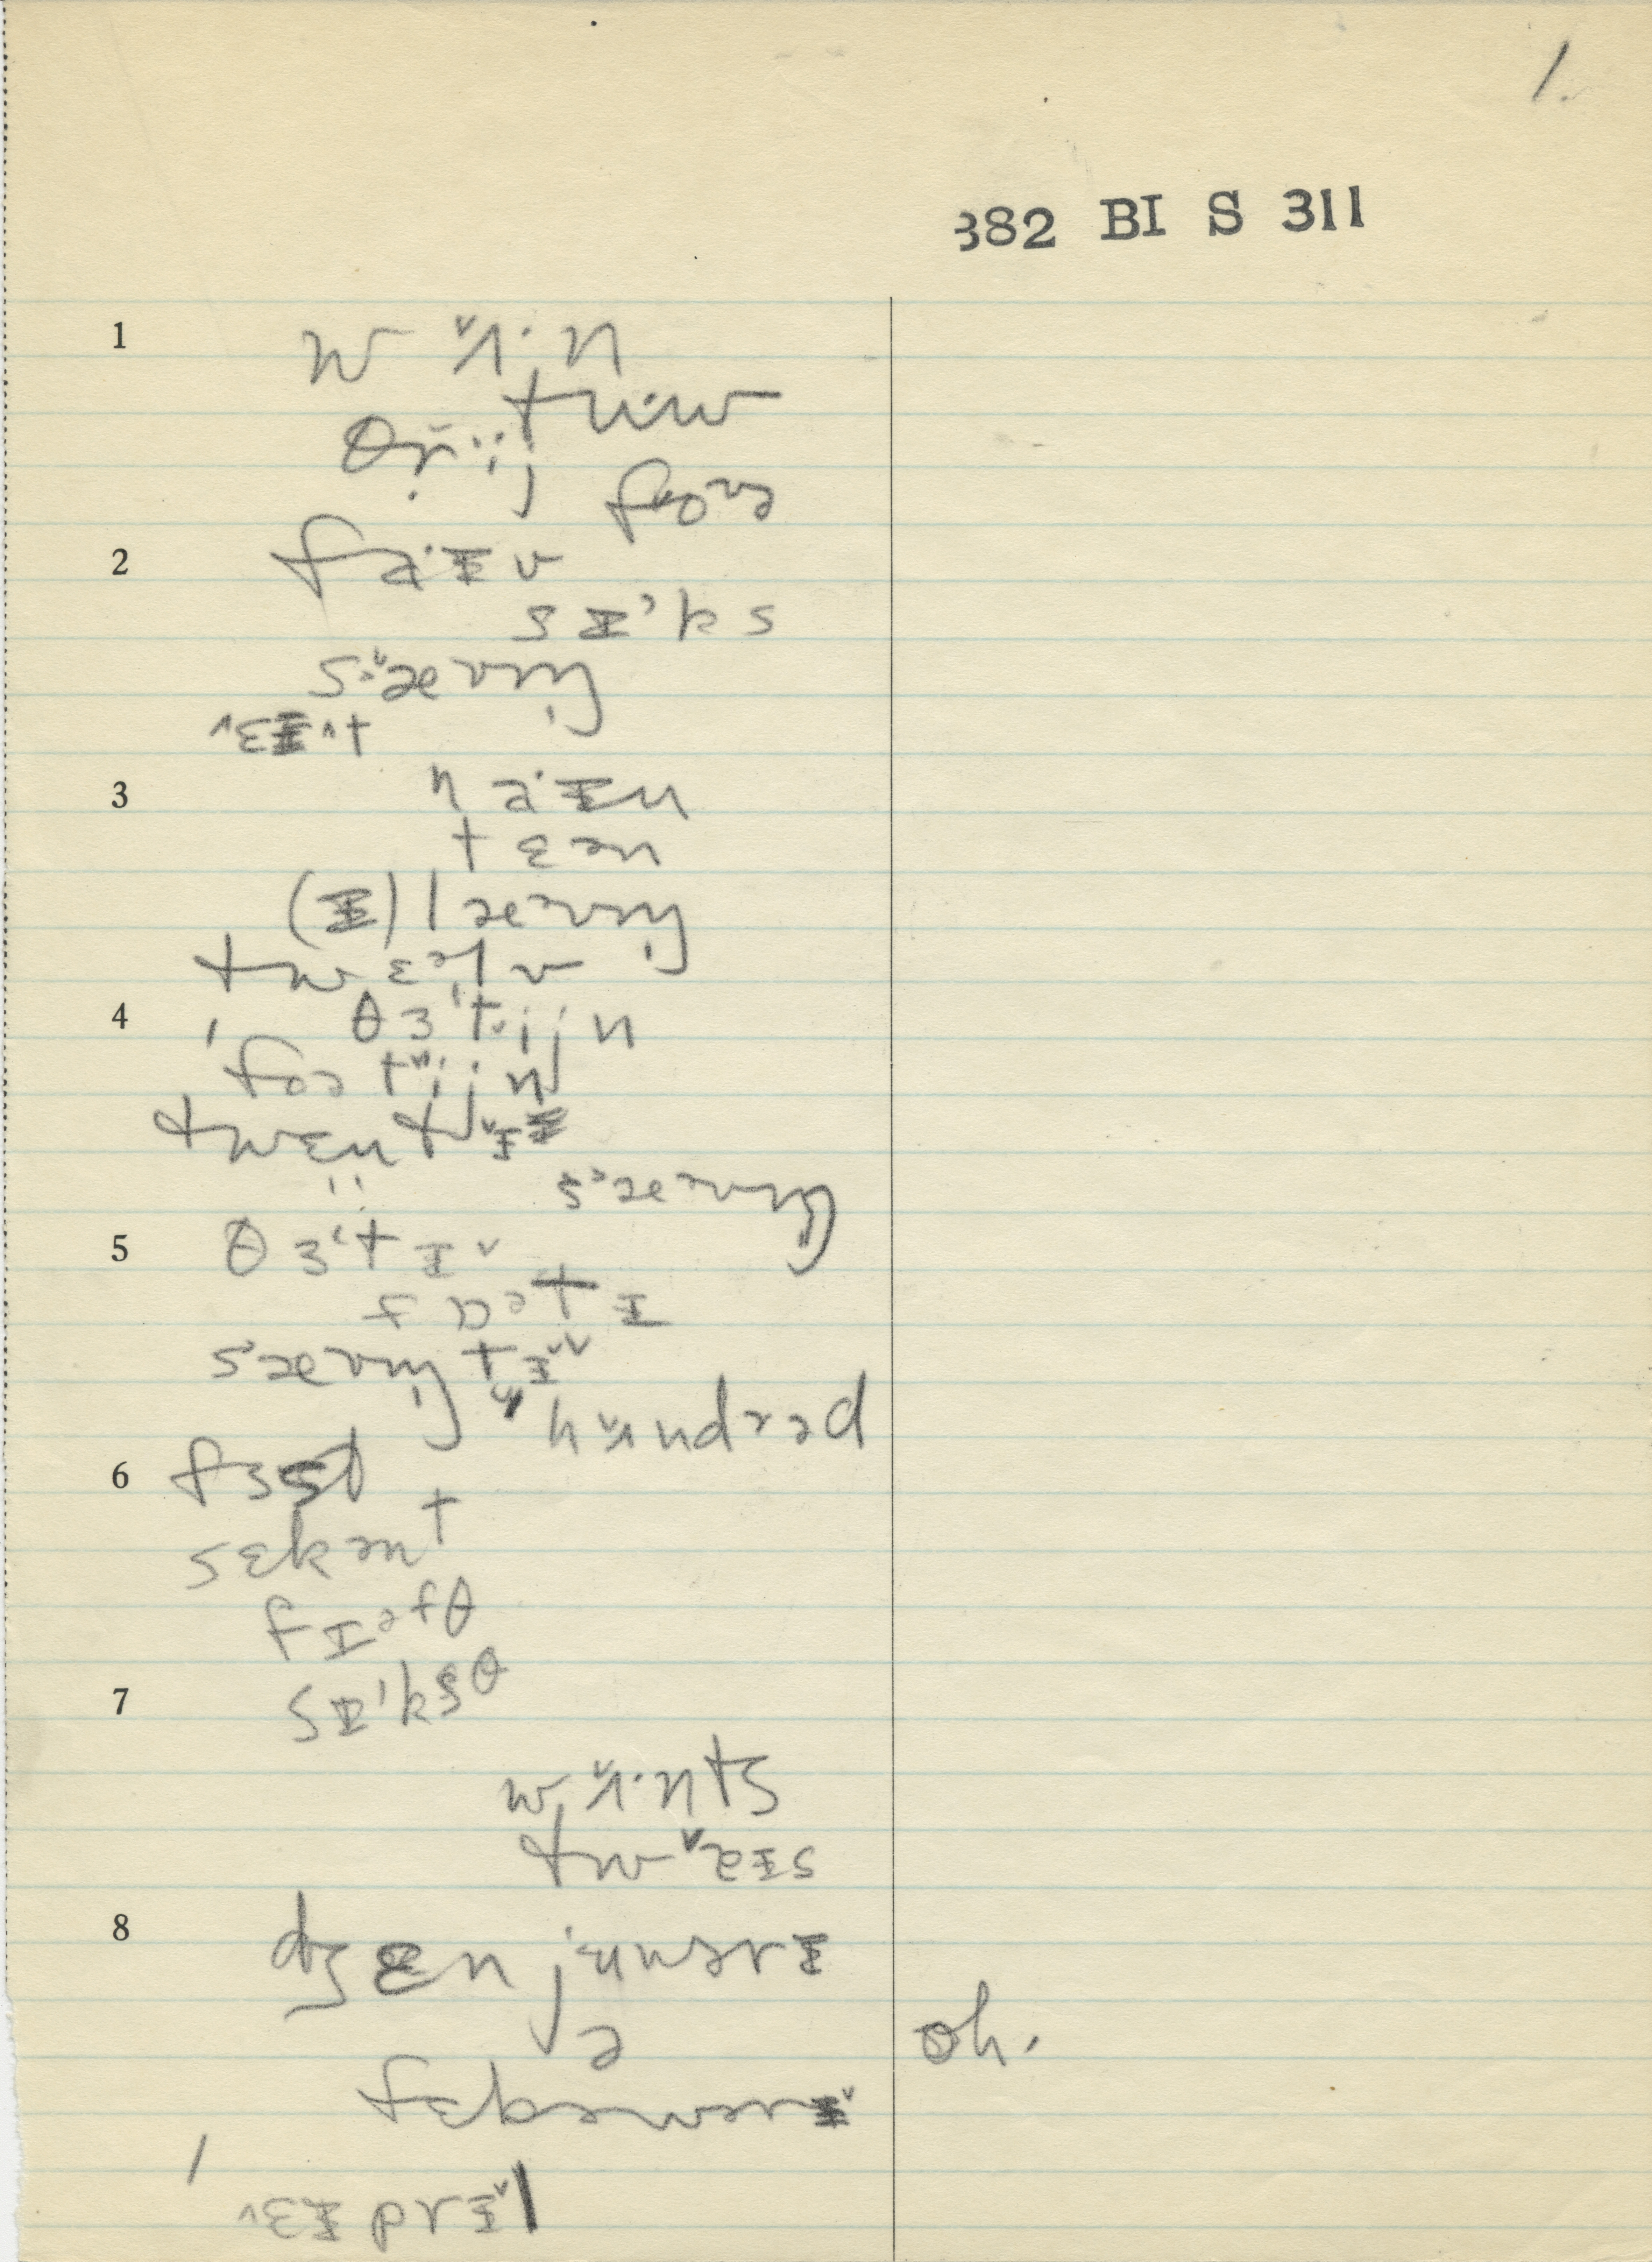 1.
382 BI S 311
1 w ʌ̌· n
tʉ·w
θr̥ǐ·j
foə
2 fa·ɪv
sɪ'ks
s'ɛəvm̩
ɛɪt
3 na·ɪn
tɛən
(ɪ)lɛəvm̩
twɛəlv
4 θɜ'tijn
'fɔətijn
twɛntɪ
sɛəvm̩
5 θɜ'tɪ
fɒətɪ
sɛəvm̩tɪ
hʌndrəd
6 fɜst
sɛkənt
fɪəfθ
7 sɪ'ksθ
wʌ·nts
twaɪs
8 dʒɛnjʉwərɪ
ə
oh.
fɛbəwərɪ
'
ɛɪprɪl